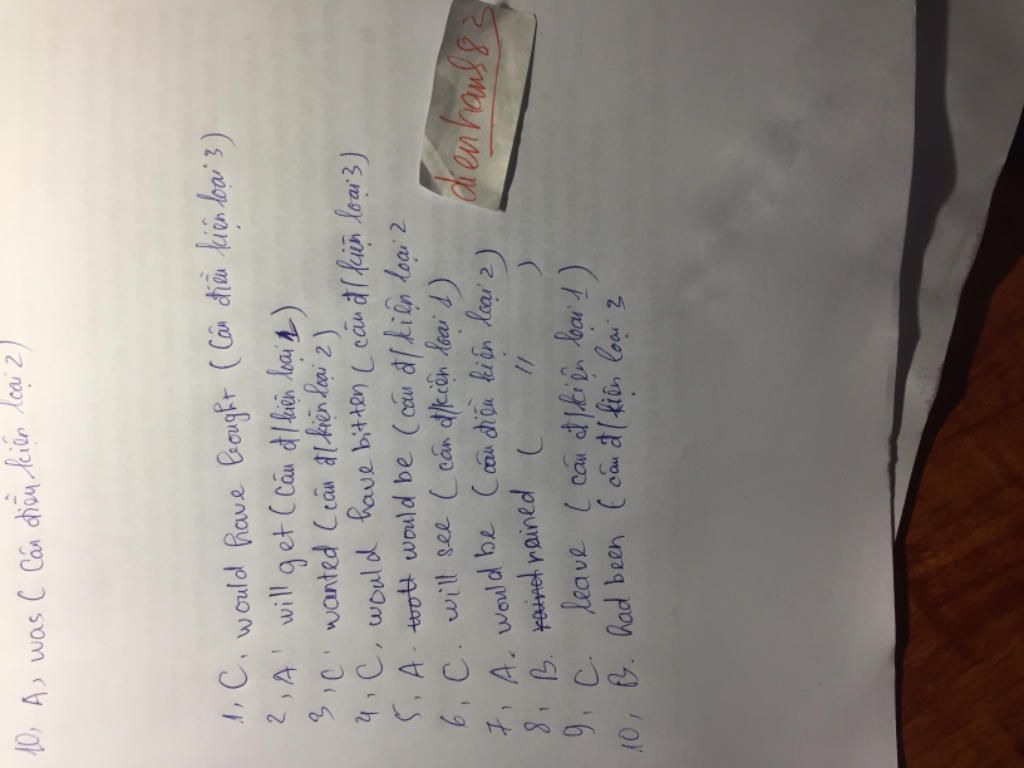 10, A, was ( Câu điều kiện loại 2)
1, C, would have bought ( câu điều kiện loại 3)
2, A, will get ( câu đ/kiện loại 1)
3, C, wanted ( câu đ/kiện loại 2)
4, C, would have bitten ( câu đ/kiện loại 3)
5, A. would be ( câu đ/kiện loại 2
6, C. will see ( câu đ/kiện loại 1)
7, A. would be ( câu điều kiện loại 2)
8, B. rained ( " )
9, C. leave ( câu đ/kiện loại 1)
10, B. had been ( câu đ/kiện loại 3
denhans83